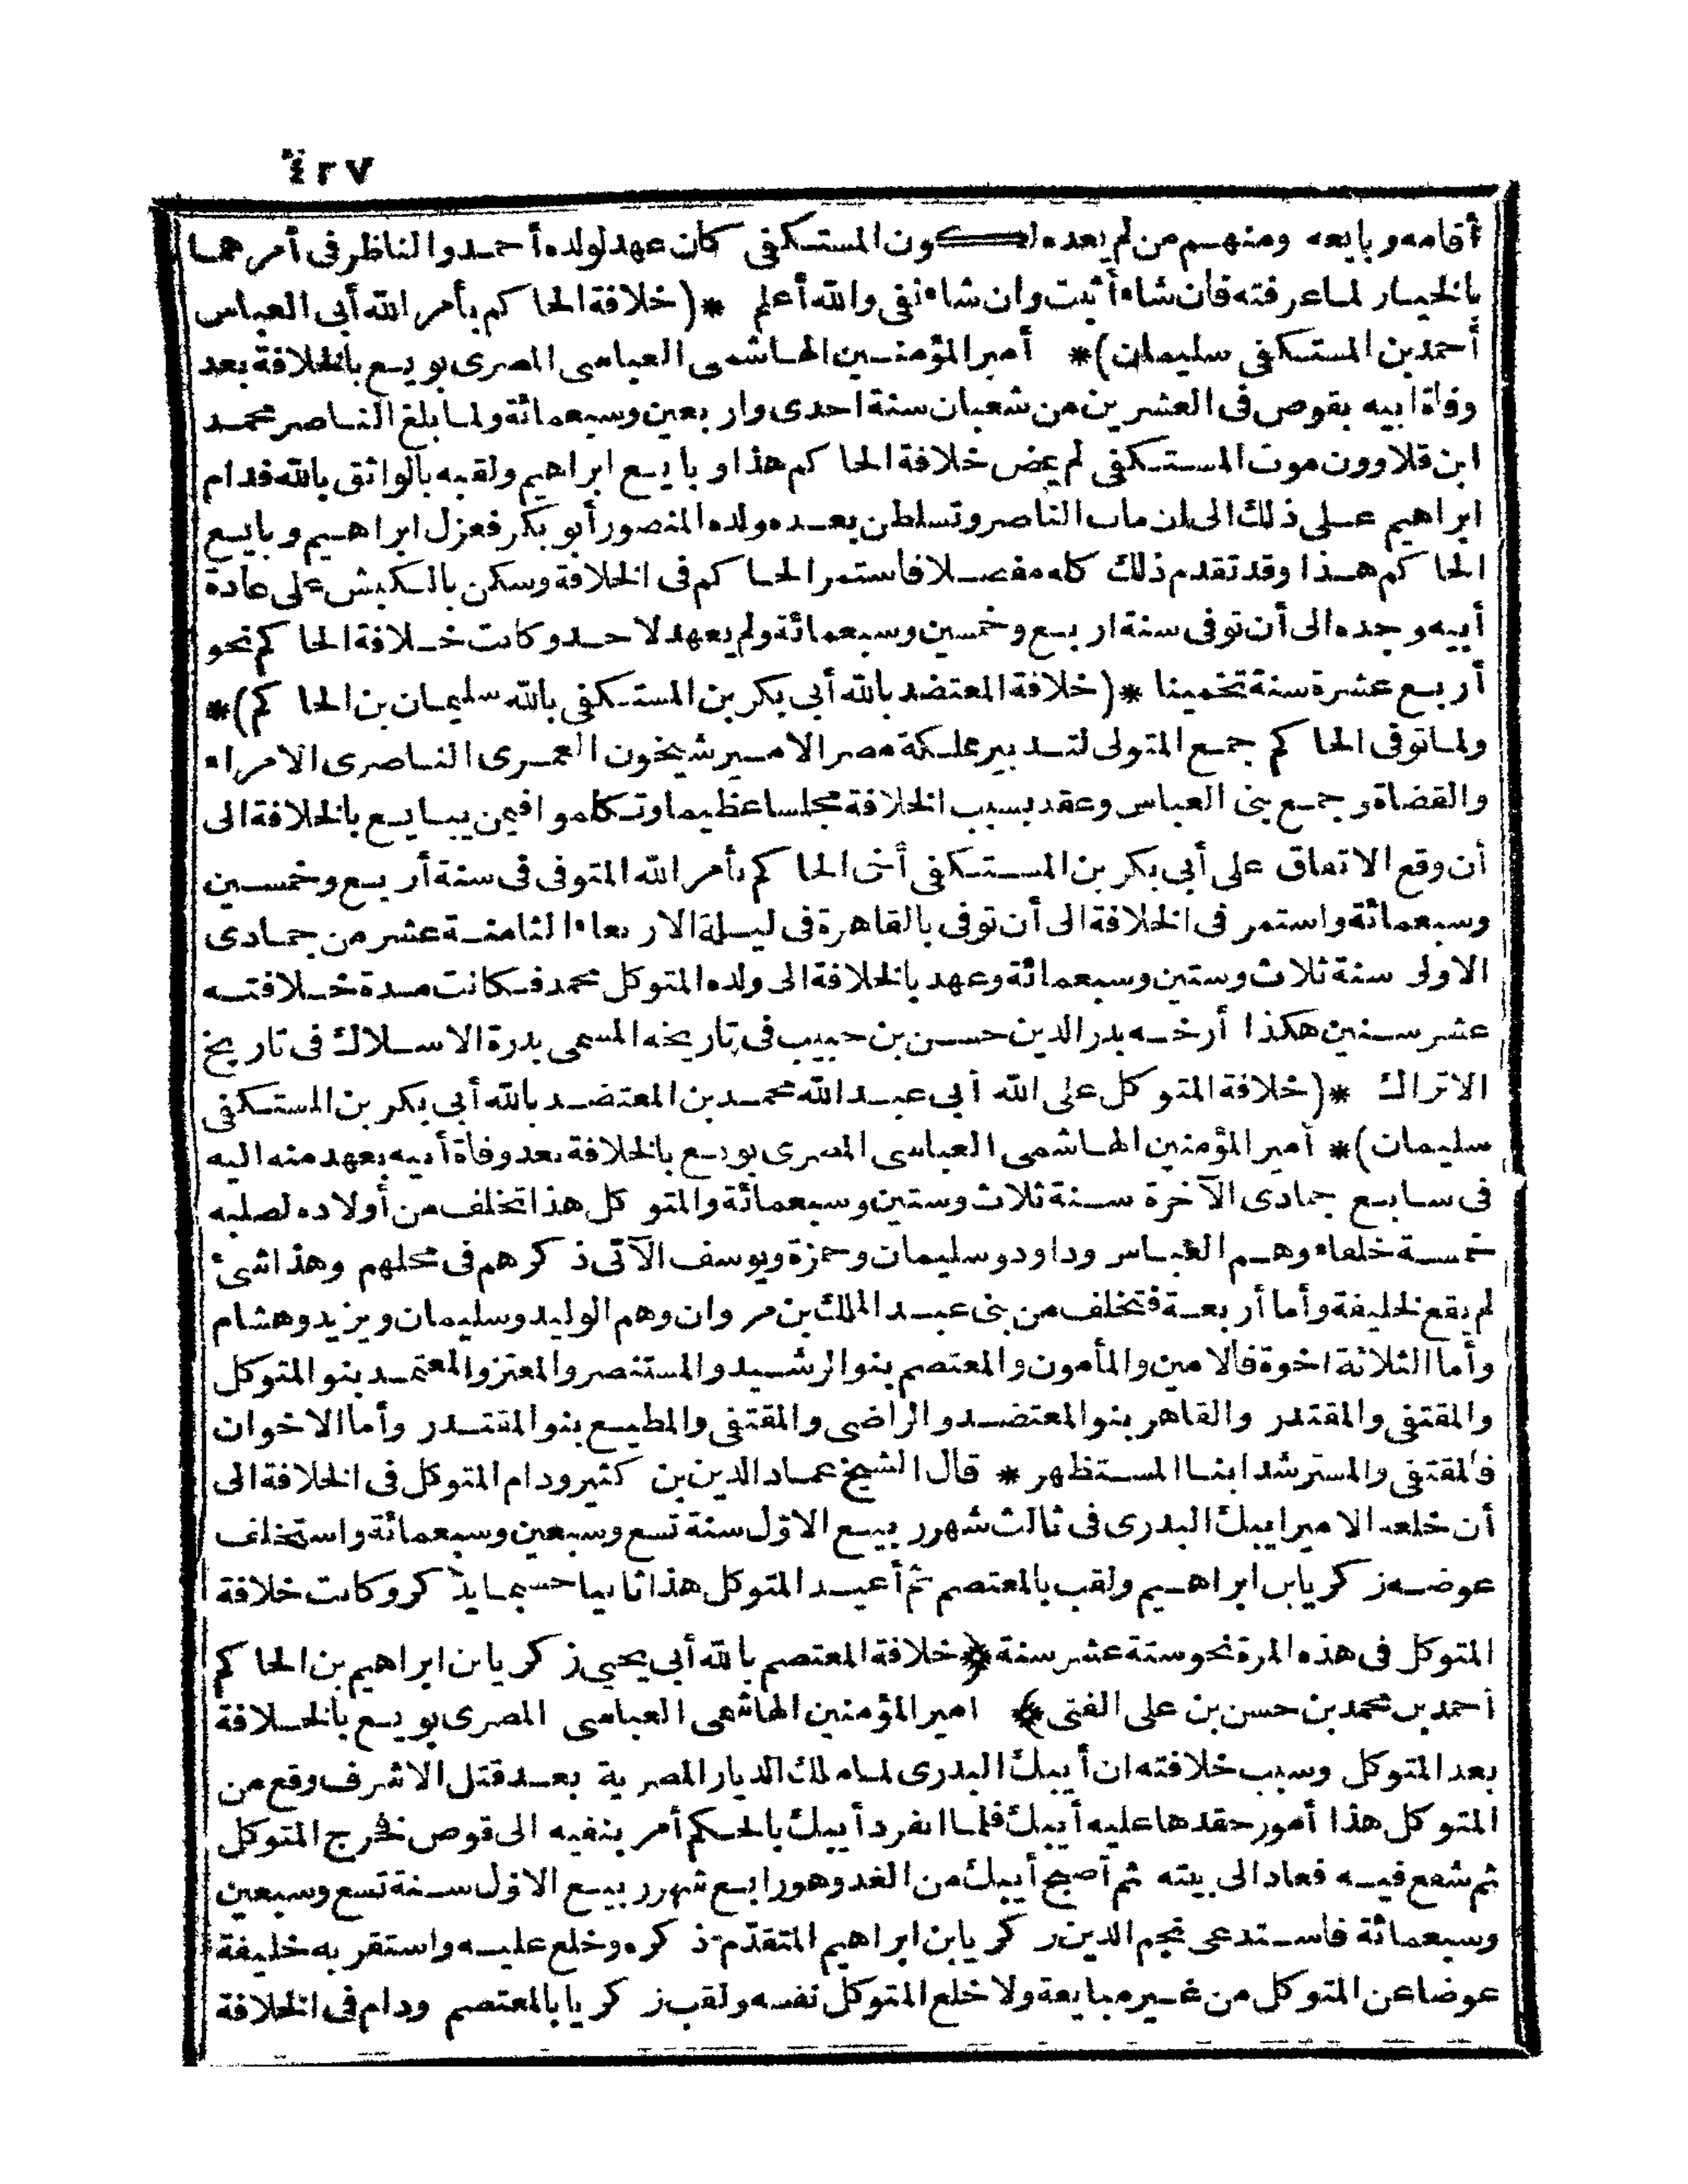 ٤٢٧
أقامه وبايعه ومنهم من لم يعده لكون المستكفى كان عهد لولده أحمد والناظر فى أمرهما
بالخيار لما عرفته فان شاء أثبت وان شاء نفى والله أعلم * (خلافة الحاكم بأمر الله أبى العباس
أحمد بن المستكفى سليمان) * أمير المؤمنين الهاشمى العباسى المصرى بويع بالخلافة بعد
وفاة أبيه بقوص فى العشرين من شعبان سنة احدى واربعين وسبعمائة ولما بلغ الناصر محمد
ابن قلاوون موت المستكفى لم يمض خلافة الحاكم هذا وبايع ابراهيم ولقبه بالواثق بالله فدام
ابراهيم على ذلك الى ان مات الناصر وتسلطن بعده ولده المنصور أبو بكر فعزل ابراهيم وبايع
الحاكم هذا وقد تقدم ذلك كله مفصلا فاستمر الحاكم فى الخلافة وسكن بالكبش على عادة
أبيه وجده الى أن توفى سنة اربع وخمسين وسبعمائة ولم يعهد لاحد وكانت خلافة الحاكم نحو
أربع عشرة سنة تخمينا * (خلافة المعتضد بالله أبى بكر بن المستكفى بالله سليمان بن الحاكم) *
ولما توفى الحاكم جمع المتولى لتدبير مملكة مصر الامير شيخون العمرى الناصرى الامراء
والقضاة وجمع بنى العباس وعقد بسبب الخلافة مجلسا عظيما وتكلموا فيمن يبايع بالخلافة الى
أن وقع الاتفاق على أبى بكر بن المستكفى أخى الحاكم بأمر الله المتوفى فى سنة أربع وخمسين
وسبعمائة واستمر فى الخلافة الى أن توفى بالقاهرة فى ليلة الاربعاء الثامنة عشر من جمادى
الاولى سنة ثلاث وستين وسبعمائة وعهد بالخلافة الى ولده المتوكل محمد فكانت مدة خلافته
عشر سنين هكذا أرخه بدر الدين حسن بن حبيب فى تاريخه المسمى بدرة الاسلاك فى تاريخ
الاتراك * (خلافة المتوكل على الله أبى عبد الله محمد بن المعتضد بالله أبى بكر بن المستكفى
سليمان) * أمير المؤمنين الهاشمى العباسى المصرى بويع بالخلافة بعد وفاة أبيه بعهد منه اليه
فى سابع جمادى الآخرة سنة ثلاث وستين وسبعمائة والمتوكل هذا تخلف من أولاده لصلبه
خمسة خلفاء وهم العباس وداود وسليمان وحمزة ويوسف الآتى ذكرهم فى محلهم وهذا شئ
لم يقع لخليفة وأما أربعة فتخلف من بنى عبد الملك بن مروان وهم الوليد وسليمان ويزيد وهشام
وأما الثلاثة اخوة فالامين والمأمون والمعتصم بنو الرشيد والمستنصر والمعتز والمعتمد بنو المتوكل
والمقتفى والمقتدر والقاهر بنو المعتضد والراضى والمقتفى والمطيع بنو المقتدر وأما الاخوان
فالمقتفى والمسترشد ابنا المستظهر * قال الشيخ عماد الدين بن كثير ودام المتوكل فى الخلافة الى
أن خلعه الامير ايبك البدرى فى ثالث شهر ربيع الاول سنة تسع وسبعين وسبعمائة واستخلف
عوضه زكريا بن ابراهيم ولقب بالمعتصم ثم أعيد المتوكل هذا ثانيا حسبما يذكر وكانت خلافة
المتوكل فى هذه المرة نحو ستة عشر سنة ﴿خلافة المعتصم بالله أبى يحيى زكريا بن ابراهيم بن الحاكم
أحمد بن محمد بن حسن بن على الفتى﴾ امير المؤمنين الهاشمى العباسى المصرى بويع بالخلافة
بعد المتوكل وسبب خلافته ان أيبك البدرى لما ملك الديار المصرية بعد قتل الاشرف وقع من
المتوكل هذا أمور حقدها عليه أيبك فلما انفرد أيبك بالحكم أمر بنفيه الى قوص فخرج المتوكل
ثم شفع فيه فعاد الى بيته ثم أصبح أيبك من الغد وهو رابع شهر ربيع الاول سنة تسع وسبعين
وسبعمائة فاستدعى نجم الدين زكريا بن ابراهيم المتقدم ذكره وخلع عليه واستقر به خليفة
عوضا عن المتوكل من غير مبايعة ولا خلع المتوكل نفسه ولقب زكريا بالمعتصم ودام فى الخلافة